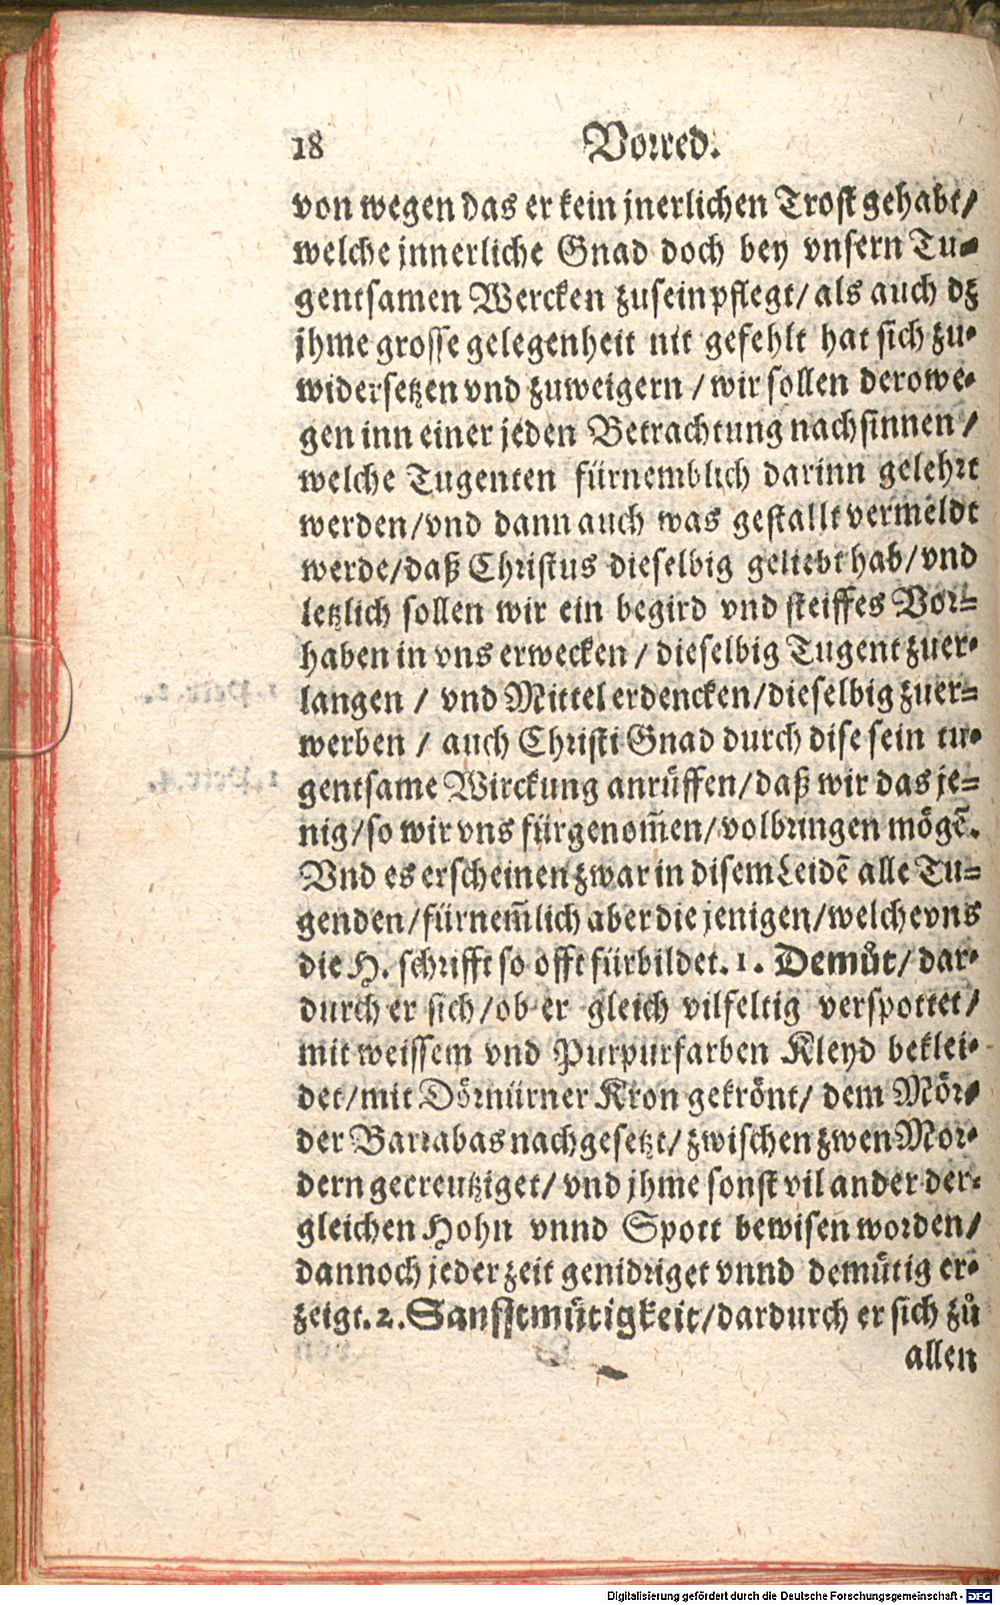 18 Vorred.
von wegen das er kein jnerlichen Trost gehabt/
welche jnnerliche Gnad doch bey vnsern Tu-
gentsamen Wercken zusein pflegt/ als auch dz
jhme grosse gelegenheit nit gefehlt hat sich zu-
widersetzen vnd zuweigern / wir sollen derowe-
gen inn einer jeden Betrachtung nachsinnen /
welche Tugenten fürnemblich darinn gelehrt
werden/vnd dann auch was gestallt vermeldt
werde/daß Christus dieselbig geliebt hab/vnd
letzlich sollen wir ein begird vnd steiffes Vor-
haben in vns erwecken / dieselbig Tugent zuer-
langen / vnd Mittel erdencken/dieselbig zuer-
werben / auch Christi Gnad durch dise sein tu-
gentsame Wirckung anrüffen/daß wir das je-
nig/so wir vns fürgenom̃en/volbringen mögẽ.
Vnd es erscheinen zwar in disem Leidẽ alle Tu-
genden/fürnem̃lich aber die jenigen/welche vns
die H. schrifft so offt fürbildet. 1. Demůt/ dar-
durch er sich/ob er gleich vilfeltig verspottet/
mit weissem vnd Purpurfarben Kleyd beklei-
det/mit Dörnürner Kron gekrönt/ dem Mör-
der Barrabas nachgesetzt/ zwischen zwen Mor-
dern gecreutziget/ vnd jhme sonst vil ander der-
gleichen Hohn vnnd Spott bewisen worden/
dannoch jeder zeit genidriget vnnd demütig er-
zeigt. 2. Sanfftmütigkeit/dardurch er sich zů
allen
Digitalisierung gefördert durch die Deutsche Forschungsgemeinschaft - DFG